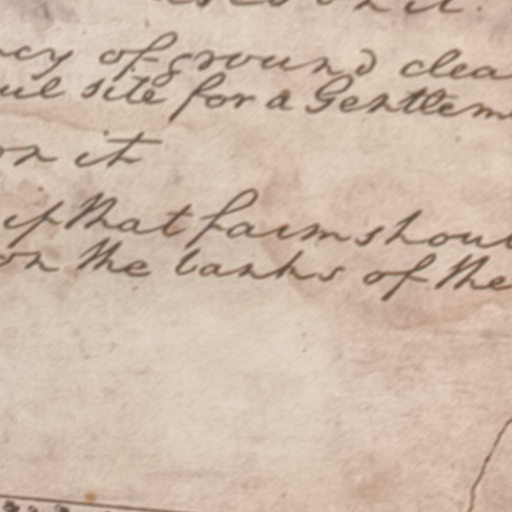 on it.
of ground clea
site for a Gentlem
on it
if that farm shou
on the banks of the